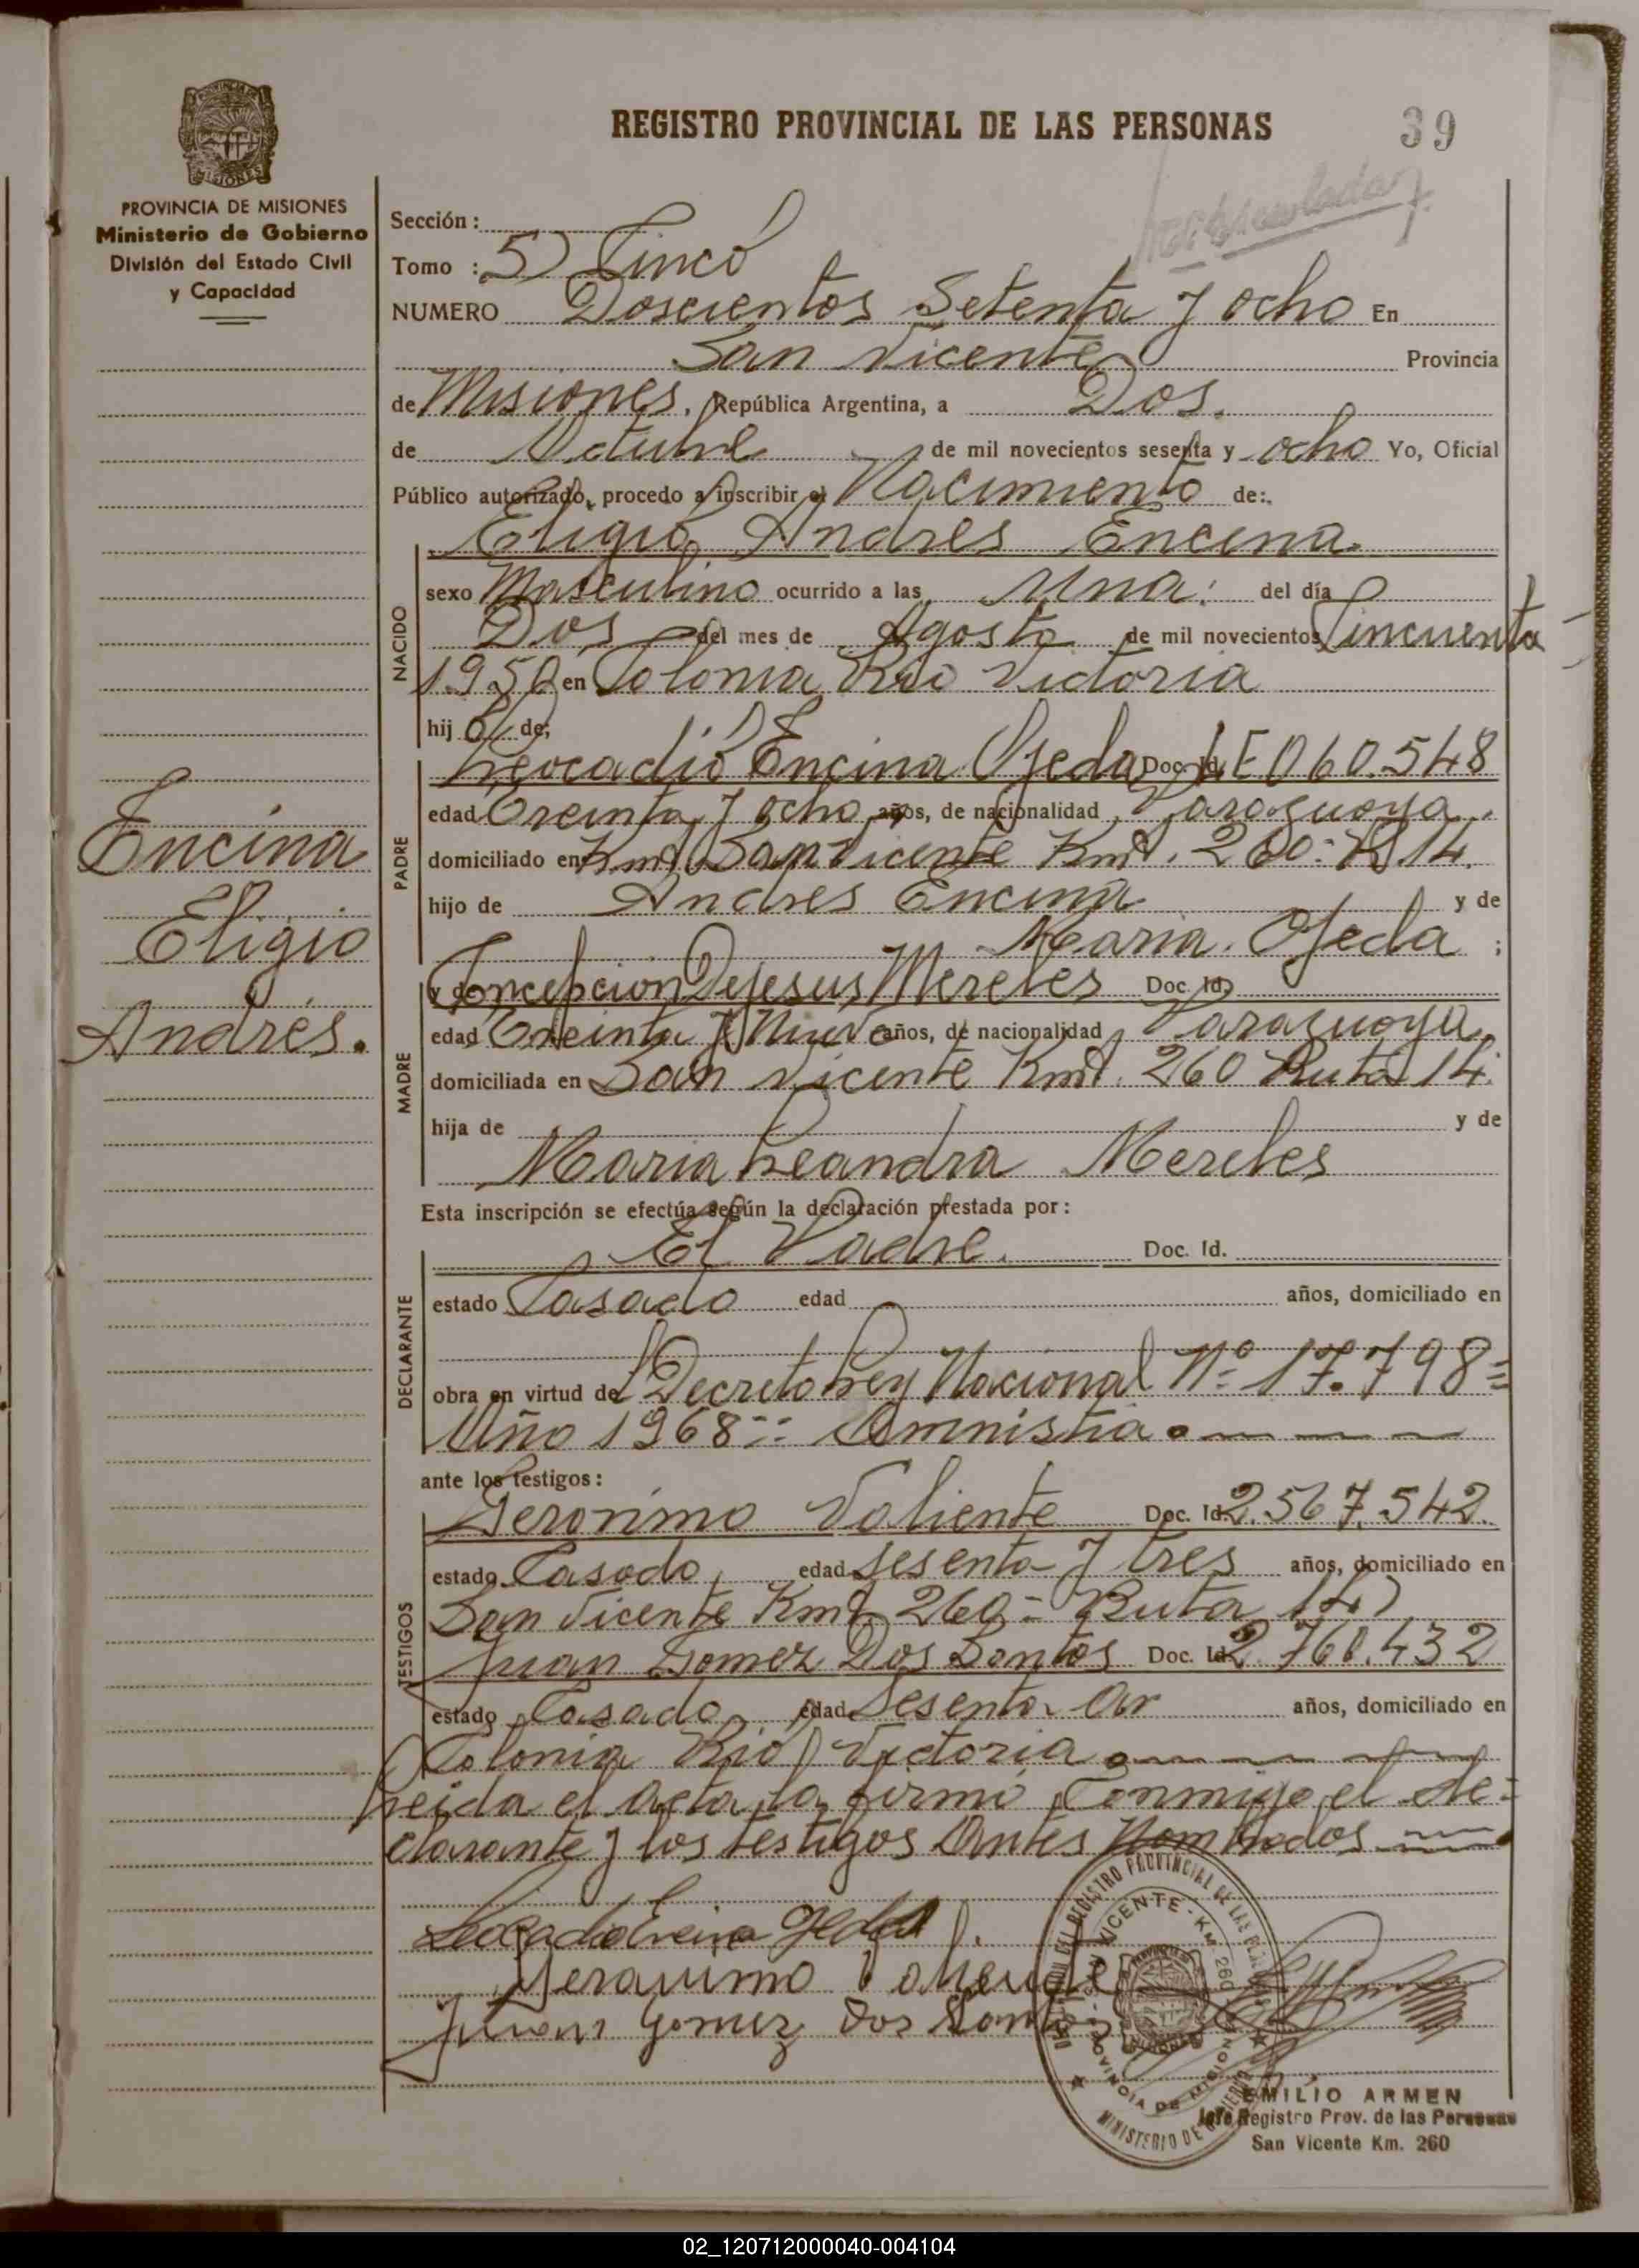 REGISTRO PROVINCIAL DE LAS PERSONAS
39
PROVINCIA DE MISIONES
Ministerio de Gobierno
División del Estado Civil
y Capacidad
Sección:
Tomo : 5) Cinco
NUMERO Doscientos Setenta y ocho En
San Vicente Provincia
de Misiones, República Argentina, a Dos.
de Octubre de mil novecientos sesenta y ocho Yo, Oficial
Público autorizado, procedo a inscribir el Nacimiento de:
Eligio Andres Encina
NACIDO
sexo Masculino ocurrido a las Una: del día
Dos del mes de Agosto de mil novecientos Cincuenta
1950 en Colonia Rio Victoria
hijo de:
PADRE
Leocadio Encina Ojeda Doc. Id. E 060.548
edad Treinta y ocho años, de nacionalidad Paraguaya
domiciliado en Kmt. San Vicente Kmt. 260- R 14.
hijo de Andres Encina y de
Maria. Ojeda ;
Encina
Eligio
Andrés.
MADRE
y de Concepcion Dejesus Mereles Doc. Id.
edad Treinta y Nueve años, de nacionalidad Paraguaya
domiciliada en San Vicente Kmt. 260 Ruta 14.
hija de y de
Maria Leandra Mereles
Esta inscripción se efectúa según la declaración prestada por:
DECLARANTE
El Padre. Doc. Id.
estado Casado edad años, domiciliado en
obra en virtud del Decreto Ley Nacional Nº 17.798=
Año 1968 = Amnistia.
ante los testigos:
TESTIGOS
Geronimo Valiente Doc. Id. 2.567.542.
estado Casado, edad sesenta y tres años, domiciliado en
San Vicente Kmt. 260 = Ruta 14)
Juan Gomez Dos Santos Doc. Id. 2.760.432
estado Casado, edad Sesenta años, domiciliado en
Colonia Rio Victoria
Leida el acta la firmo Conmigo el de=
clarante y los testigos Antes Nombrados
Leocadio Encina Ojeda
Geronimo Valiente
Juan Gomez Dos Santos
DEL REGISTRO PROVINCIAL DE LAS PERSONAS
SAN VICENTE - KM. 260
PROVINCIA DE MISIONES
MINISTERIO DE GOBIERNO
EMILIO ARMEN
Jefe Registro Prov. de las Personas
San Vicente Km. 260
02_120712000040-004104